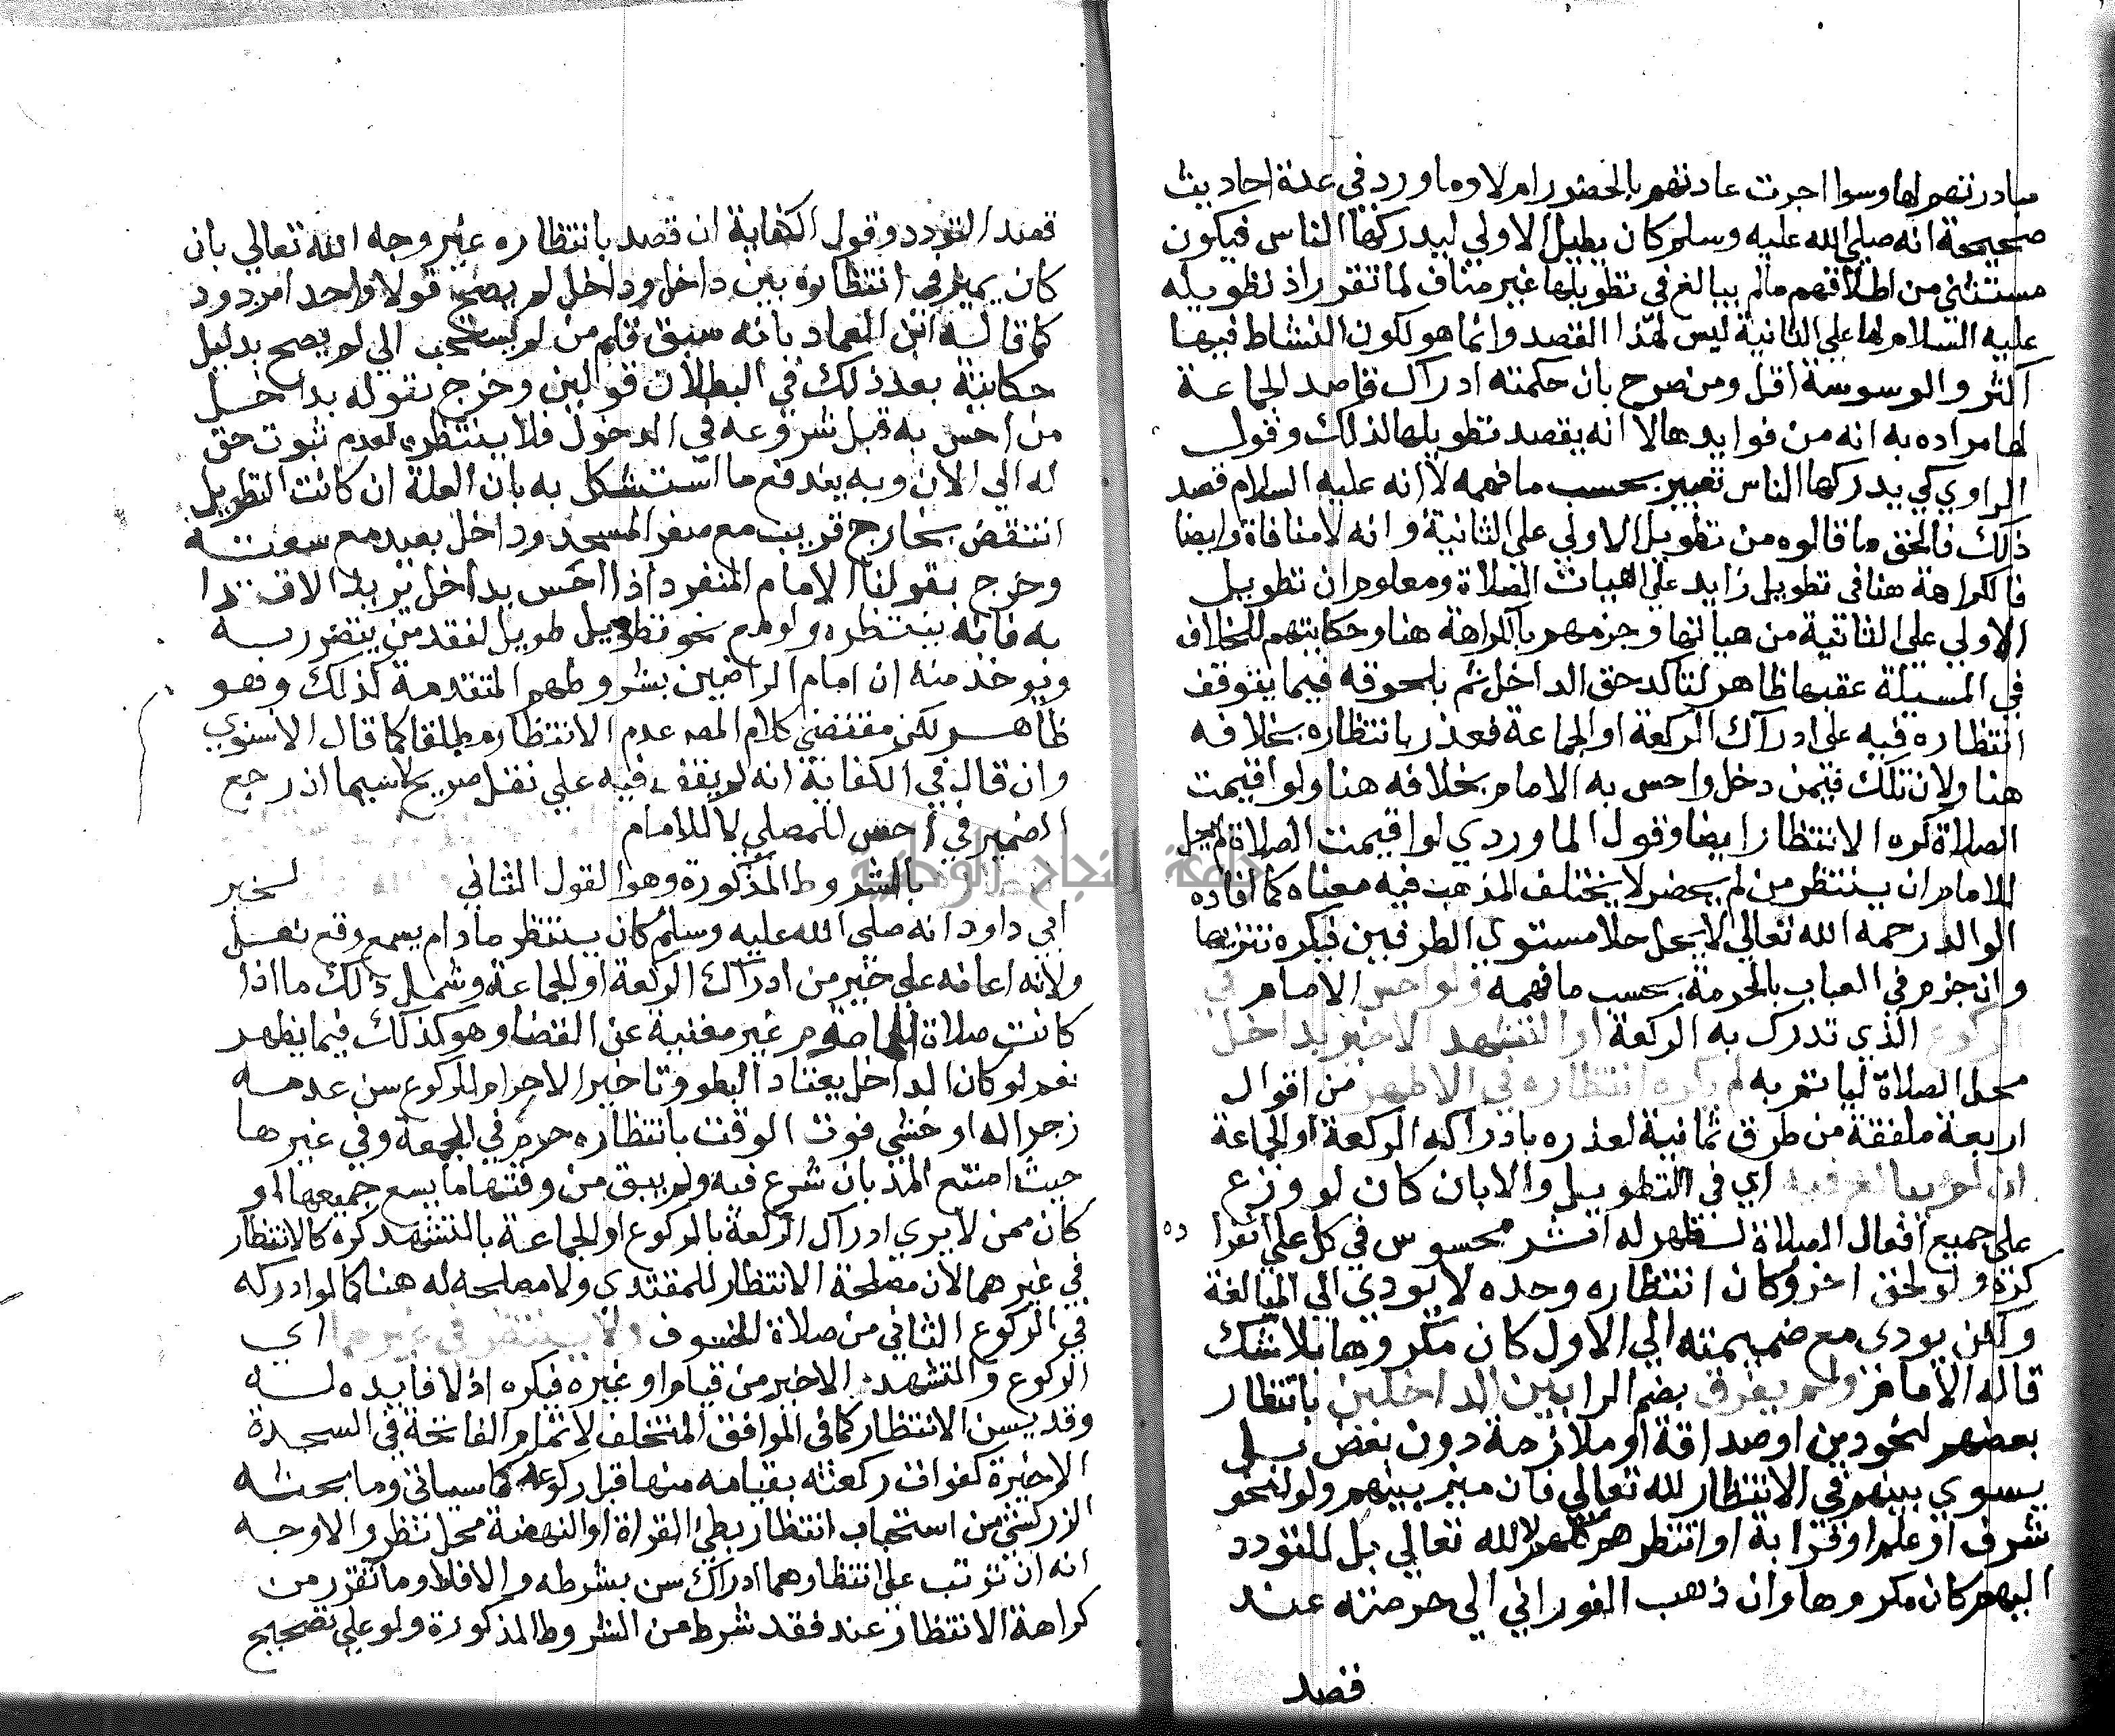 مبادرتهم لها وسوا اجرت عادتهم بالحضور ام لا وما ورد في عدة احاديث
صحيحة انه صلى الله عليه وسلم كان يطيل الاولي ليدركها الناس فيكون
مستثني من اطلاقهم مالم يبالغ في تطويلها غير مناف لما تقرر اذ تطويله
عليه السلام لها علي الثانية ليس لهذا القصد وانما هو لكون النشاط فيها
اكثر والوسوسة اقل ومن صرح بان حكمته ادراك قاصد الجماعة
لها مراده به انه من فوايدها لا انه يقصد تطويلها لذلك وقول
الراوي كي يدركها الناس تعبير بحسب ما فهمه لا انه عليه السلام قصد
ذلك فالحق ما قالوه من تطويل الاولي علي الثانية وانه لا منافاة وايضا
فالكراهة هنا في تطويل زايد علي هيات الصلاة ومعلوم ان تطويل
الاولي علي الثانية من هياتها وجزمهم بالكراهة هنا وحكايتهم للخلاف
في المسيلة عقبها ظاهر لتاكد حق الداخل ثم بلحوقه فيما يتوقف
انتظاره فيه علي ادراك الركعة او الجماعة فعذر بانتظاره بخلافه
هنا ولان تلك فيمن دخل واحس به الامام بخلافه هنا ولو اقيمت
الصلاة كره الانتظار ايضا وقول الماوردي لو اقيمت الصلاة لم يحل
للامام ان ينتظر من لم يحضر لا يختلف المذهب فيه معناه كما افاده
الوالد رحمه الله تعالي لا يحل حلا مستوي الطرفين فيكره تنزيها
وان جزم في العباب بالحرمة بحسب ما فهمه ولو احس الامام في
الركوع الذي تدرك به الركعة او التشهد الاخير بداخل
محل الصلاة لياتم به لم يكره انتظاره في الاظهر من اقوال
اربعة ملفقة من طرق ثمانية لعذره بادراكه الركعة او الجماعة
ان لم يبالغ فيه اي في التطويل والا بان كان لو وزع
علي جميع افعال الصلاة لظهر له اثر محسوس في كل علي انفراده
كره ولو لحق اخر وكان انتظاره وحده لا يودي الي المبالغة
ولكن يودي مع ضميمته الي الاول كان مكروها بلا شك
قاله الامام ولم يفرق بضم الرا بين الداخلين بانتظار
بعضهم لنحو دين او صداقة او ملازمة دون بعض بل
يسوي بينهم في الانتظار لله تعالي فان ميز بينهم ولو لنحو
شرف او علم او قرابة او انتظرهم كلهم لا لله تعالي بل للتودد
اليهم كان مكروها وان ذهب الفوراني الي حرمته عند
قصد
قصد التودد وقول الكفاية ان قصد بانتظاره غير وجه الله تعالي بان
كان يميز في انتظاره بين داخل وداخل لم يصح قولا واحدا مردود
كما قاله ابن العماد بانه سبق قلم من لم يستحب الي لم يصح بدليل
حكايته بعد ذلك في البطلان قولين وخرج بقوله بداخل
من احس به قبل شروعه في الدخول فلا ينتظره لعدم ثبوت حق
له الي الان وبه يندفع ما استشكل به بان العلة ان كانت التطويل
انتقض بخارج قريب مع صغر المسجد وداخل بعيد مع سعته
وخرج بقولنا الامام المنفرد اذا احس بداخل يريد الاقتدا
به فانه ينتظره ولو مع نحو تطويل طويل لفقد من يتضرر به
ويوخذ منه ان امام الراضين بشروطهم المتقدمة كذلك وهو
ظاهر لكن مقتضي كلام المص عدم الانتظار مطلقا كما قال الاسنوي
وان قال في الكفاية انه لم يقف فيه علي نقل صريح لا سيما اذ رجع
الضمير في احس للمصلي لا للامام
بالشروط المذكورة وهو القول الثاني لخبر
ابي داود انه صلي الله عليه وسلم كان ينتظر ما دام يسمع وقع نعل
ولانه اعانة علي خير من ادراك الركعة او الجماعة وشمل ذلك ما اذا
كانت صلاة الماموم غير مغنية عن القضا وهو كذلك فيما يظهر
نعم لو كان الداخل يعتاد البطو وتاخير الاحرام للركوع سن عدمه
زجرا له او خشي فوت الوقت بانتظاره حرم في الجمعة وفي غيرها
حيث امتنع المد بان شرع فيه ولم يبق من وقتها ما يسع جميعها او
كان ممن لا يري ادراك الركعة بالركوع او الجماعة بالتشهد كره كالانتظار
في غيرهما لان مصلحة الانتظار للمقتدي ولا مصلحة له هنا كما لو ادركه
في الركوع الثاني من صلاة الخسوف ولا ينتظر في غيرهما اي
الركوع والتشهد الاخير من قيام او غيره فيكره اذ لا فايده له
وقد يسن الانتظار كما في الموافق المتخلف لاتمام الفاتحة في السجدة
الاخيرة كفوات ركعته بقيامه منها قبل ركوعه كما سياتي وما بحثه
الزركشي من استحباب انتظار بطي القراة او النهضة محل نظر والاوجه
انه ان ترتب علي انتظارهما ادراك سن بشرطه والا فلا وما تقرر من
كراهة الانتظار عند فقد شرط من الشروط المذكورة ولو علي تصحيح
جامعة النجاح الوطنية